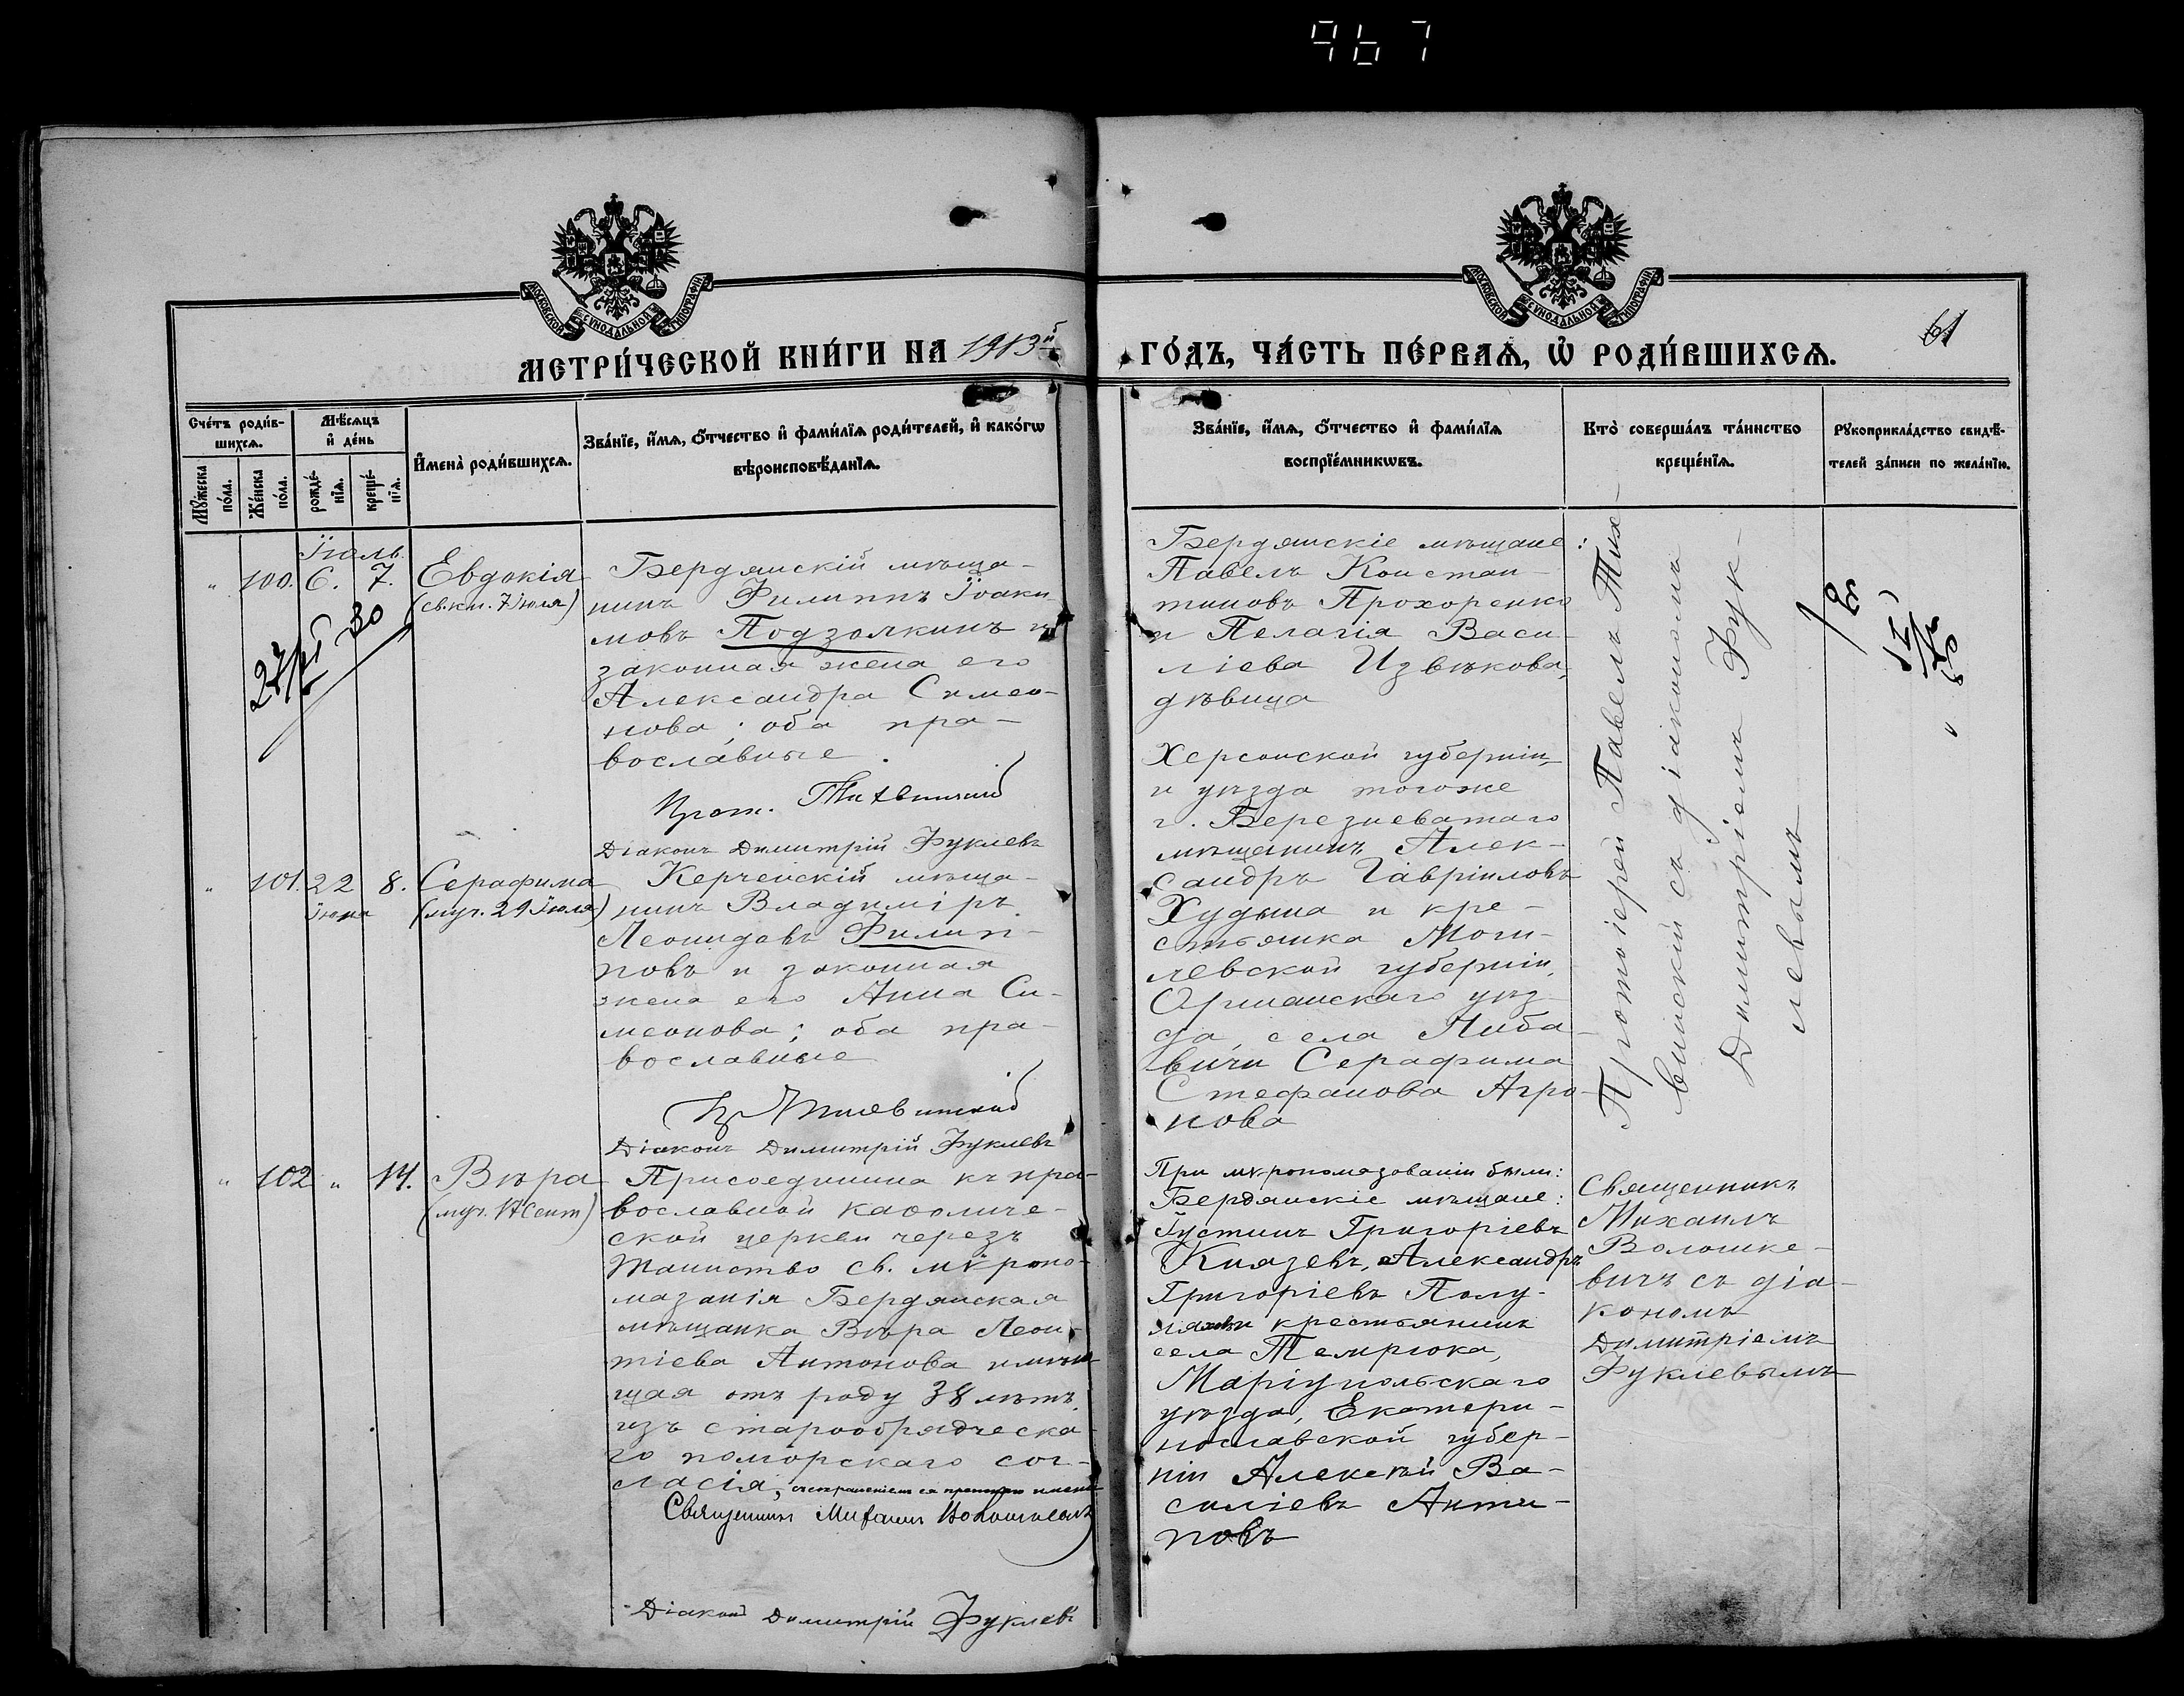 967
МОСКОВСКОЙ СѴНОДАЛЬНОЙ ТИПОГРАФІИ
МОСКОВСКОЙ СѴНОДАЛЬНОЙ ТИПОГРАФІИ
61
МЕТРИ́ЧЕСКОЙ КНИ́ГИ НА 1913й
ГО́ДЪ, ЧА́СТЬ ПЕ́РВАѦ, Ѡ҆ РОДИ́ВШИХСѦ.
Сче́тъ роди́в-
шихсѧ.
Мѣ́сѧцъ
и҆ де́нь
Мꙋ́жеска
по́ла.
Же́нска
по́ла.
рожде́-
нїѧ.
креще́-
нїѧ.
И҆мена̀ роди́вшихсѧ.
Зва́нїе, и҆́мѧ, ѻ҆́тчество и҆ фами́лїѧ роди́телей, и҆ како́гѡ
вѣроисповѣ́данїѧ.
Зва́нїе, и҆́мѧ, ѻ҆́тчество и҆ фами́лїѧ
воспрїе́мникѡвъ.
Кто̀ соверша́лъ та́инство
креще́нїѧ.
Рꙋкоприкла́дство свидѣ́-
телей за́писи по жела́нїю.
Іюль
" 100. 6. 7. Евдокія
(св. кн. 7 Іюля)
Бердянскій мѣща-
нинъ Филиппъ Іоаки-
мовъ Подзолкинъ и
законная жена его
Александра Симео-
нова; оба пра-
вославные.
Прот. Тихвинскій
Діаконъ Димитрій Фуклевъ
Бердянскіе мѣщане:
Павелъ Констан-
тиновъ Прохоренко
и Пелагія Васи-
ліева Извѣкова,
дѣвица
Протоіерей Павелъ Тих-
винскій съ діакономъ
Димитріемъ Фук-
левымъ
" 101. 22 8. Серафима
Іюня (муч. 29 Іюля)
Керченскій мѣща-
нинъ Владиміръ
Леонидовъ Филип-
повъ и законная
жена его Анна Си-
меонова; оба пра-
вославные
Діаконъ Димитрій Фуклевъ
Херсонской губерніи,
и уѣзда тогоже
г. Березневатаго
мѣщанинъ Алек-
сандръ Гавріиловъ
Худыша и кре-
стьянка Моги-
левской губерніи,
Оршанскаго уѣз-
да, села Либа-
вичи Серафима
Стефанова Агро-
нова
" 102 " 14. Вѣра
(муч. 17 Сент)
Присоединина къ пра-
вославной каѳоличе-
ской церкви черезъ
таинство св. мѵропо-
мазанія Бердянская
мѣщанка Вѣра Леон-
тіева Антонова имѣю-
щая отъ роду 38 лѣтъ,
изъ старообрядческа-
го поморскаго сог-
ласія,
Священникъ Михаилъ Волошкевичъ
Діаконъ Димитрій Фуклевъ
При мѵропомазаніи были:
Бердянскіе мѣщане:
Іустинъ Григоріевъ
Князевъ, Александръ
Григоріевъ Полу-
крестьянинъ
села Темрюка,
Маріупольскаго
уѣзда, Екатери-
нославской губер-
ніи Алексѣй Ва-
силіевъ Анти-
повъ
Священникъ
Михаилъ
Волошке-
вичъ съ діа-
кономъ
Димитріемъ
Фуклевымъ